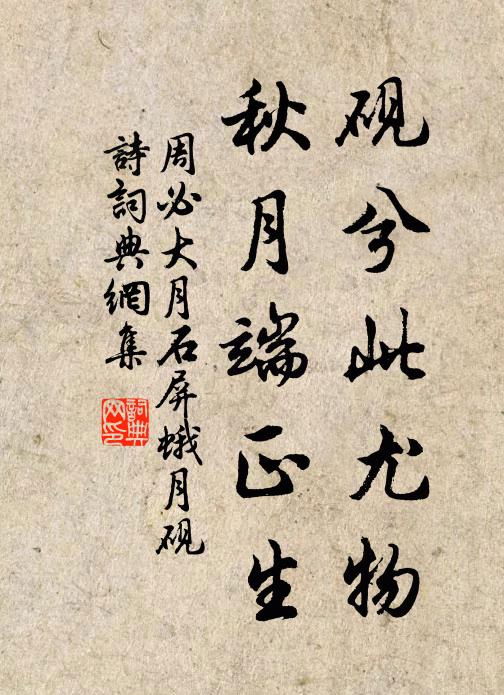 硯兮此尤物
秋月端正生
周必大月石屏蛾月硯
詩詞典網集
詞典网印